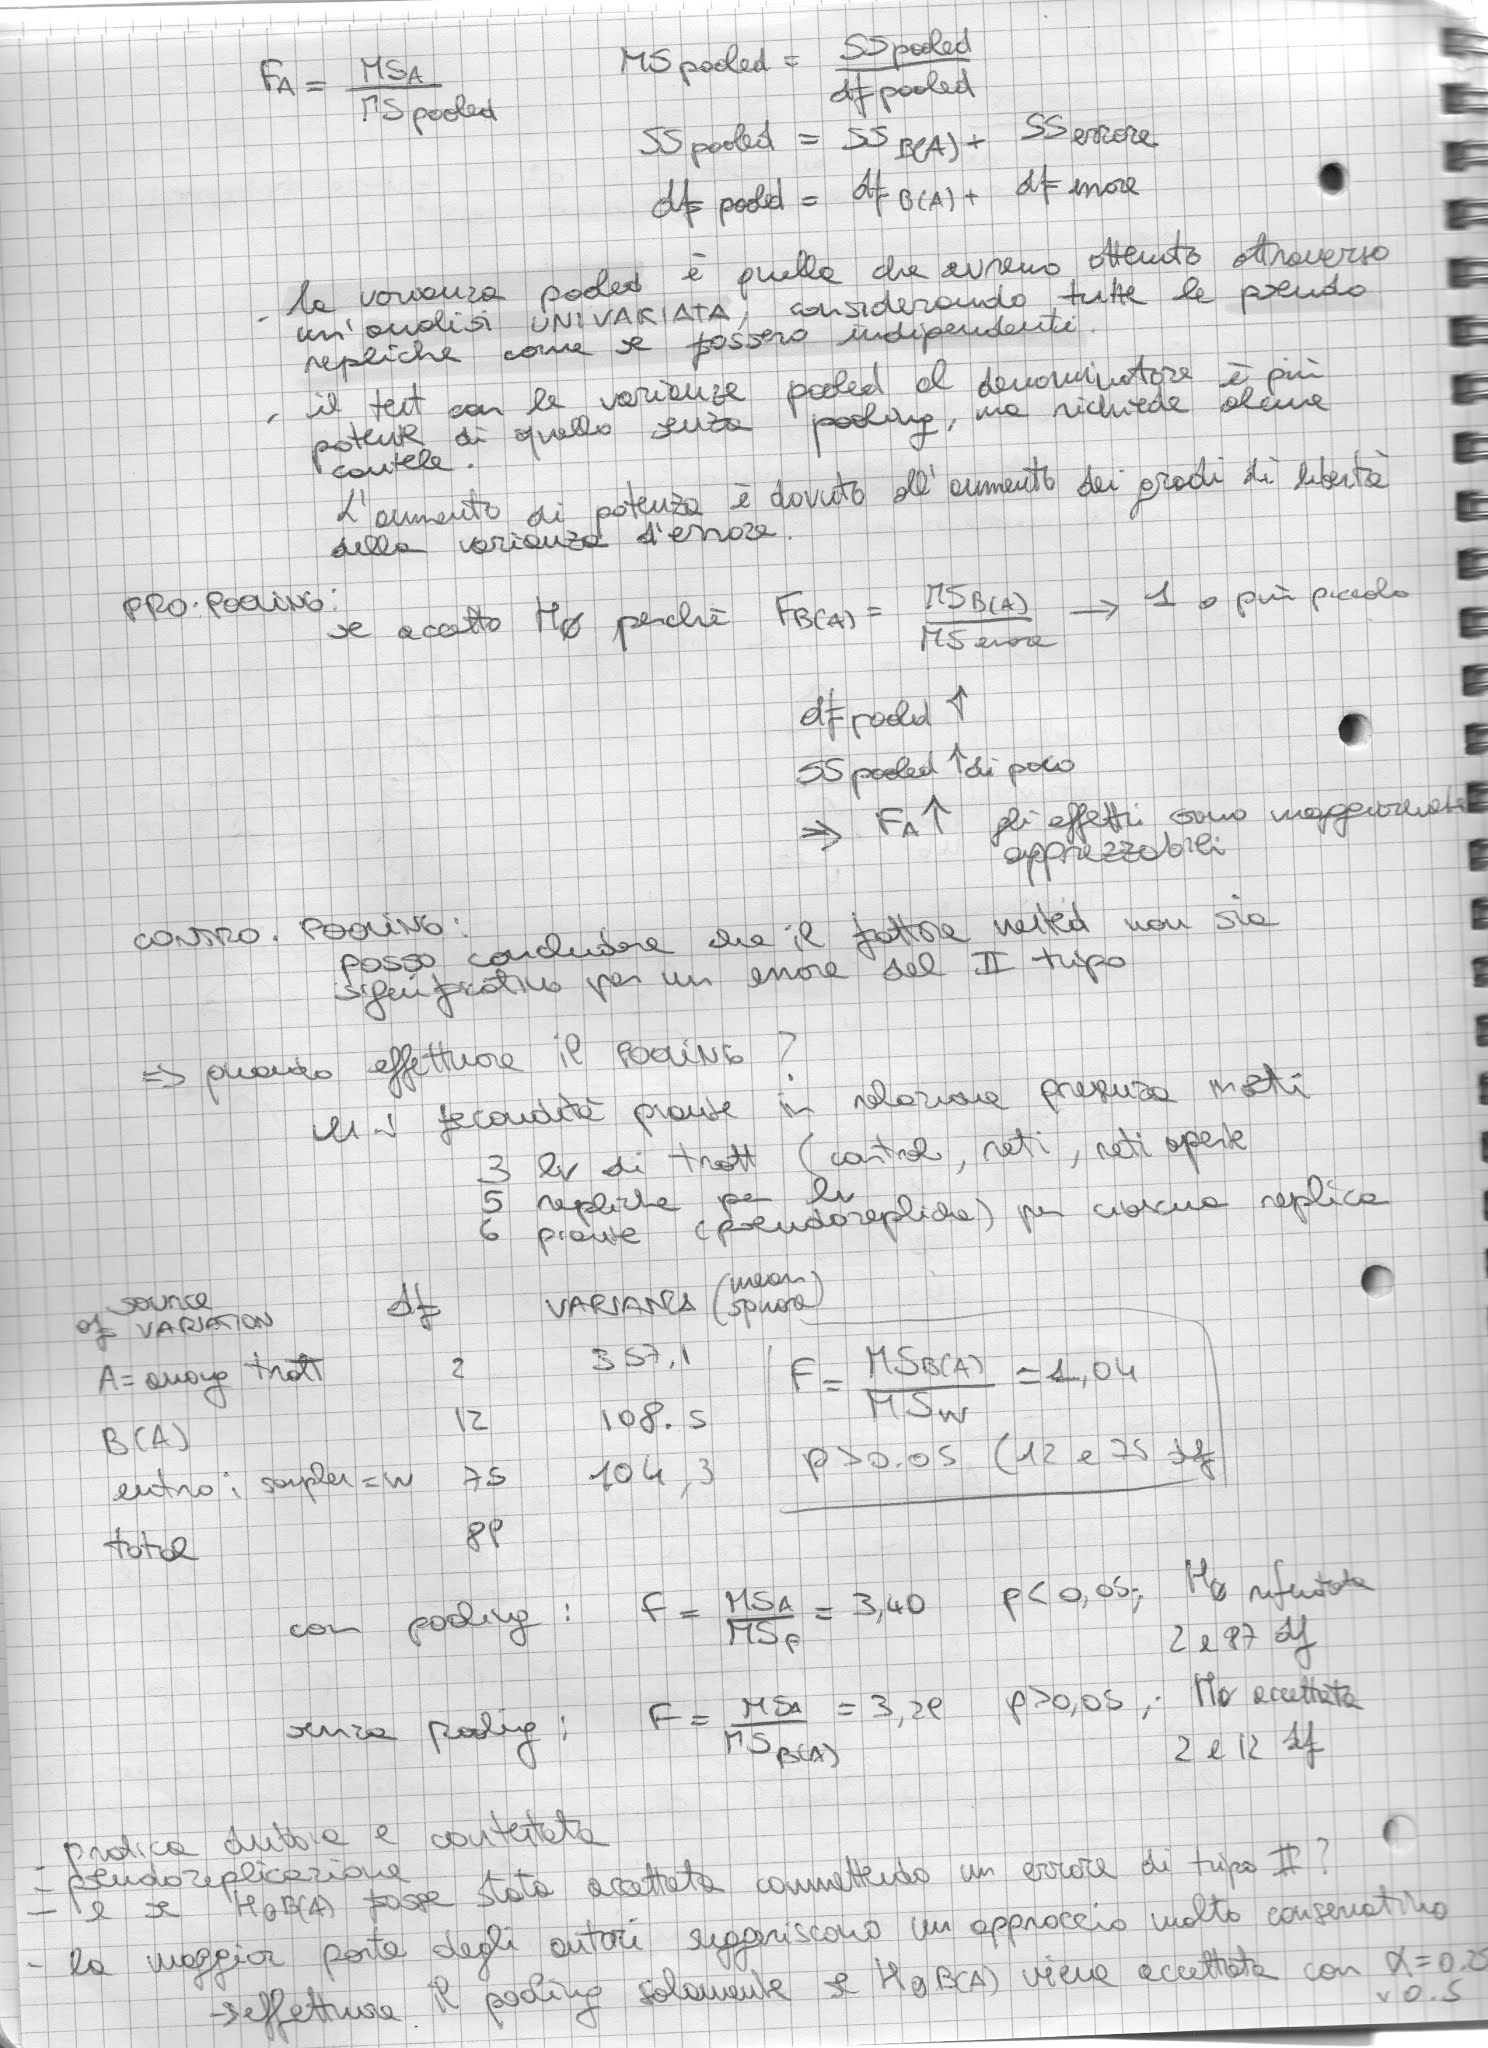 FA = MSA / MSpooled
MSpooled = SSpooled / dfpooled
SSpooled = SSB(A) + SSerrore
dfpooled = dfB(A) + dferrore
- la varianza pooled è quella che avremo ottenuto attraverso
un'analisi UNIVARIATA, considerando tutte le pseudo
repliche come se fossero indipendenti.
- il test con la varianza pooled al denominatore è più
potente di quello senza pooling, ma richiede alcune
cautele.
L'aumento di potenza è dovuto all'aumento dei gradi di libertà
della varianza d'errore.
PRO. POOLING:
se accetto HØ perchè FB(A) = MSB(A) / MSerrore → 1 o più piccolo
df pooled ↑
SS pooled ↑ di poco
⇒ FA ↑ gli effetti sono maggiormente
apprezzabili
CONTRO. POOLING:
posso concludere che il fattore nested non sia
significativo per un errore del II tipo
⇒ quando effettuare il POOLING?
fecondità piante in relazione presenza insetti
3 lv di tratt (control, reti, reti aperte
5 repliche per lv
6 piante (pseudorepliche) per ciascuna replica
source of VARIATION df VARIANZA (mean square)
A = among tratt 2 357,1
B(A) 12 108.5
entro i samples = w 75 104,3
total 89
F = MSB(A) / MSW = 1,04
p>0.05 (12 e 75 df
con pooling: F = MSA / MSp = 3,40 p<0,05; HØ rifiutata
2 e 87 df
senza pooling: F = MSA / MSB(A) = 3,29 p>0,05; HØ accettata
2 e 12 df
- pratica dubbia e contestata
- pseudoreplicazione
- e se H0B(A) fosse stata accettata commettendo un errore di tipo II?
- la maggior parte degli autori suggeriscono un approccio molto conservativo
→ effettuare il pooling solamente se H0B(A) viene accettata con α = 0.25
v 0.5